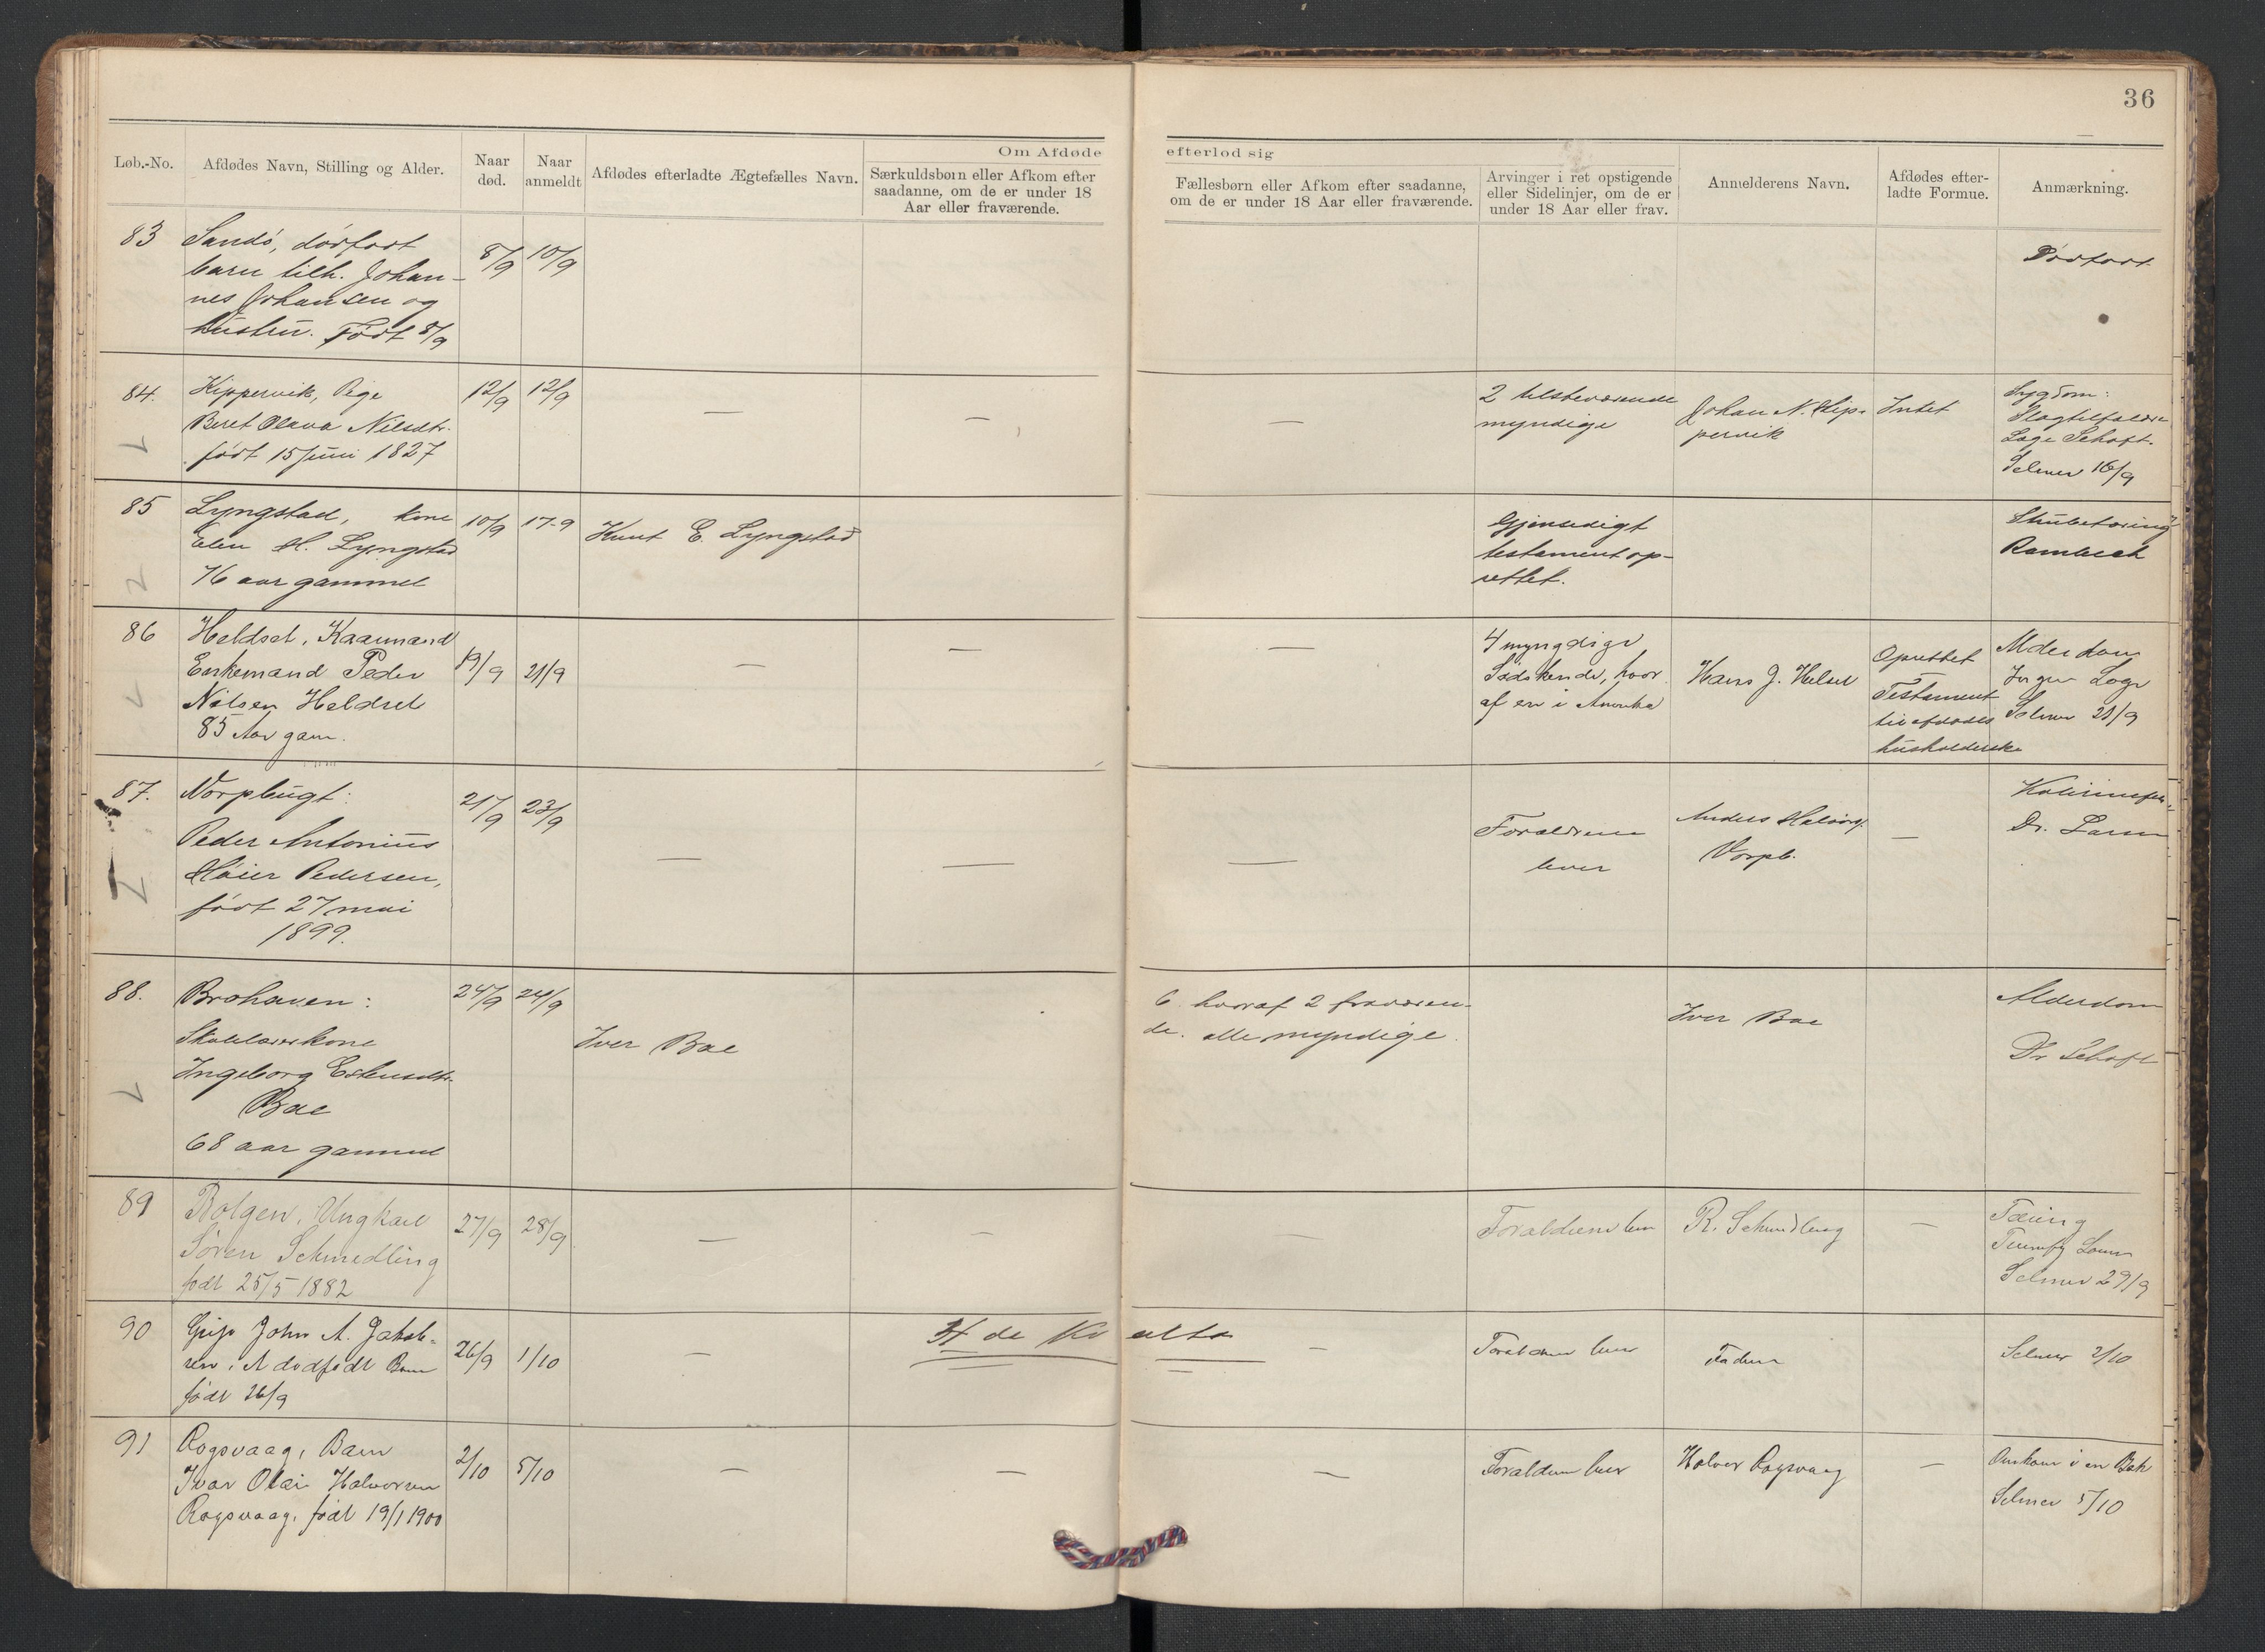 36
Om Afdøde efterlod sig
Løb.-No.
Afdødes Navn, Stilling og Alder.
Naar død.
Naar anmeldt
Afdødes efterladte Ægtefælles Navn.
Særkuldsbørn eller Afkom efter
saadanne, om de er under 18
Aar eller fraværende.
Fællesbørn eller Afkom efter saadanne,
om de er under 18 Aar eller fraværende.
Arvinger i ret opstigende
eller Sidelinjer, om de er
under 18 Aar eller frav.
Anmelderens Navn.
Afdødes efter-
ladte Formue.
Anmærkning.
83
Sandö, dödfødt
barn tilh. Johan-
nes Johansen og
hustru. Født 8/9
8/9
10/9
Dödfødt
84.
Kippervik, Pige
Beret Olava Nilsdtr.
født 15 Juni 1827
12/9
12/9
—
—
—
2 tilstevœrende
myndige
Johan N. Kip-
pervik
Intet
Sygdom:
Slagtilfælde
Læge Schøft.
Selmer 16/9
85
Lyngstad, kone
Elen M. Lyngstad
76 aar gammel
10/9
17-9
Knut E. Lyngstad
Gjensidigt
testament op-
rettet.
Strubetæring
Rambech
86
Heldset, Kaarmand
Enkemand Peder
Nilsen Heldset
85 Aar gam.
19/9
21/9
—
—
—
4 myngdige
Södskende, hvor
af en i Amerika
Hans J. Helset
Oprettet
Testament
til afdødes
husholderske
Alderdom
Ingen Læge
Selmer 21/9
87.
Vorpbugt:
Peder Antonius
Höier Pedersen,
født 27 mai
1899.
21/9
23/9
—
—
—
Forældrene
lever
Anders Halvorsen
Vorpb.
—
Dr. Larsen
88.
Brohaven:
Skolelærerkone
Ingeborg Estensdtr.
Bae
68 aar gammel
24/9
24/9
Iver Bae
6. hvoraf 2 fraværen-
de. alle myndige.
Iver Bae
Alderdom
Dr Schøft
89
Bolgen, Ungkarl
Sören Schmedling
født 25/5 1882
27/9
28/9
—
—
—
Forældrene lever
R. Schmedling
—
Tæring
Selmer 29/9
90
Grip John A. Jakob-
sen i A dødfødt Barn
født 26/9
26/9
1/10
—
4de Kvartal
—
Forældrene lever
Faderen
Selmer 2/10
91
Rogsvaag, Barn
Ivar Olai Halvorsen
Rogsvaag, født 19/1 1900
2/10
5/10
—
—
—
Forældrene lever
Halvor Rogsvaag
—
Omkom i en Bæk
Selmer 5/10